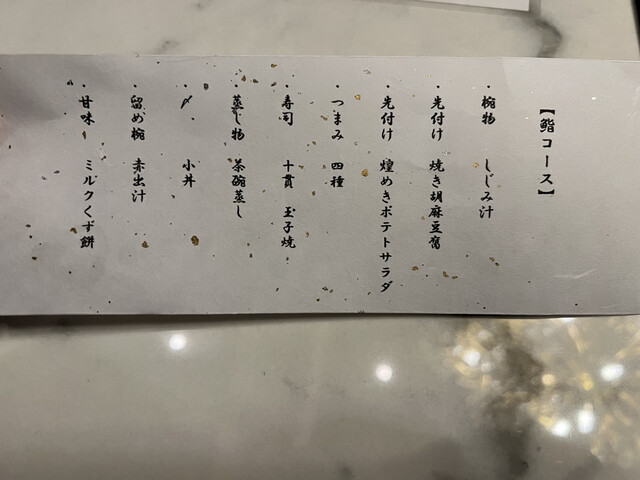 【鮨コース】
・椀物 しじみ汁
・先付け 焼き胡麻豆腐
・先付け 煌めきポテトサラダ
・つまみ 四種
・寿司 十貫 玉子焼
・蒸し物 茶碗蒸し
・〆 小丼
・留め椀 赤出汁
・甘味 ミルクくず餅